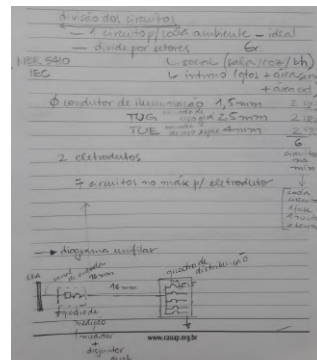 divisão dos circuitos
— 1 circuito p/ cada ambiente – ideal
— divide por setores 6x
NBR 5410 ↳ social (sala/coz/bh)
IEC ↳ íntimo (qtos + área serv
+ área ext)
ϕ condutor de iluminação 1,5mm
TUG 2,5mm
TUE 4mm
6
circuitos
no
mín
2 eletrodutos
7 circuitos no máx p/ eletroduto
cada
circuito
1 fase
→ diagrama unifilar
quadro de
distribuição
16mm
16mm
medição
medidor
+
disjuntor
www.cauap.org.br